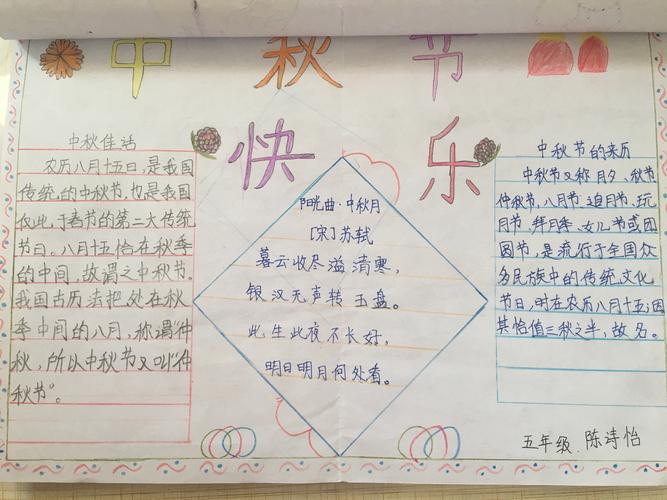 中秋节
快乐
中秋佳话
农历八月十五日,是我国
传统的中秋节,也是我国
仅此于春节的第二大传统
节日。八月十五恰在秋季
的中间,故谓之中秋节。
我国古历法把处在秋
季中间的八月,称谓“仲
秋”,所以中秋节又叫“仲
秋节”。
阳光曲·中秋月
[宋]苏轼
暮云收尽溢清寒,
银汉无声转玉盘。
此生此夜不长好,
明日明月何处看。
中秋节的来历
中秋节又称月夕、秋节
仲秋节,八月节、追月节、玩
月节、拜月节、女儿节或团
圆节,是流行于全国众
多民族中的传统文化
节日,时在农历八月十五;因
其恰值三秋之半,故名。
五年级.陈诗怡